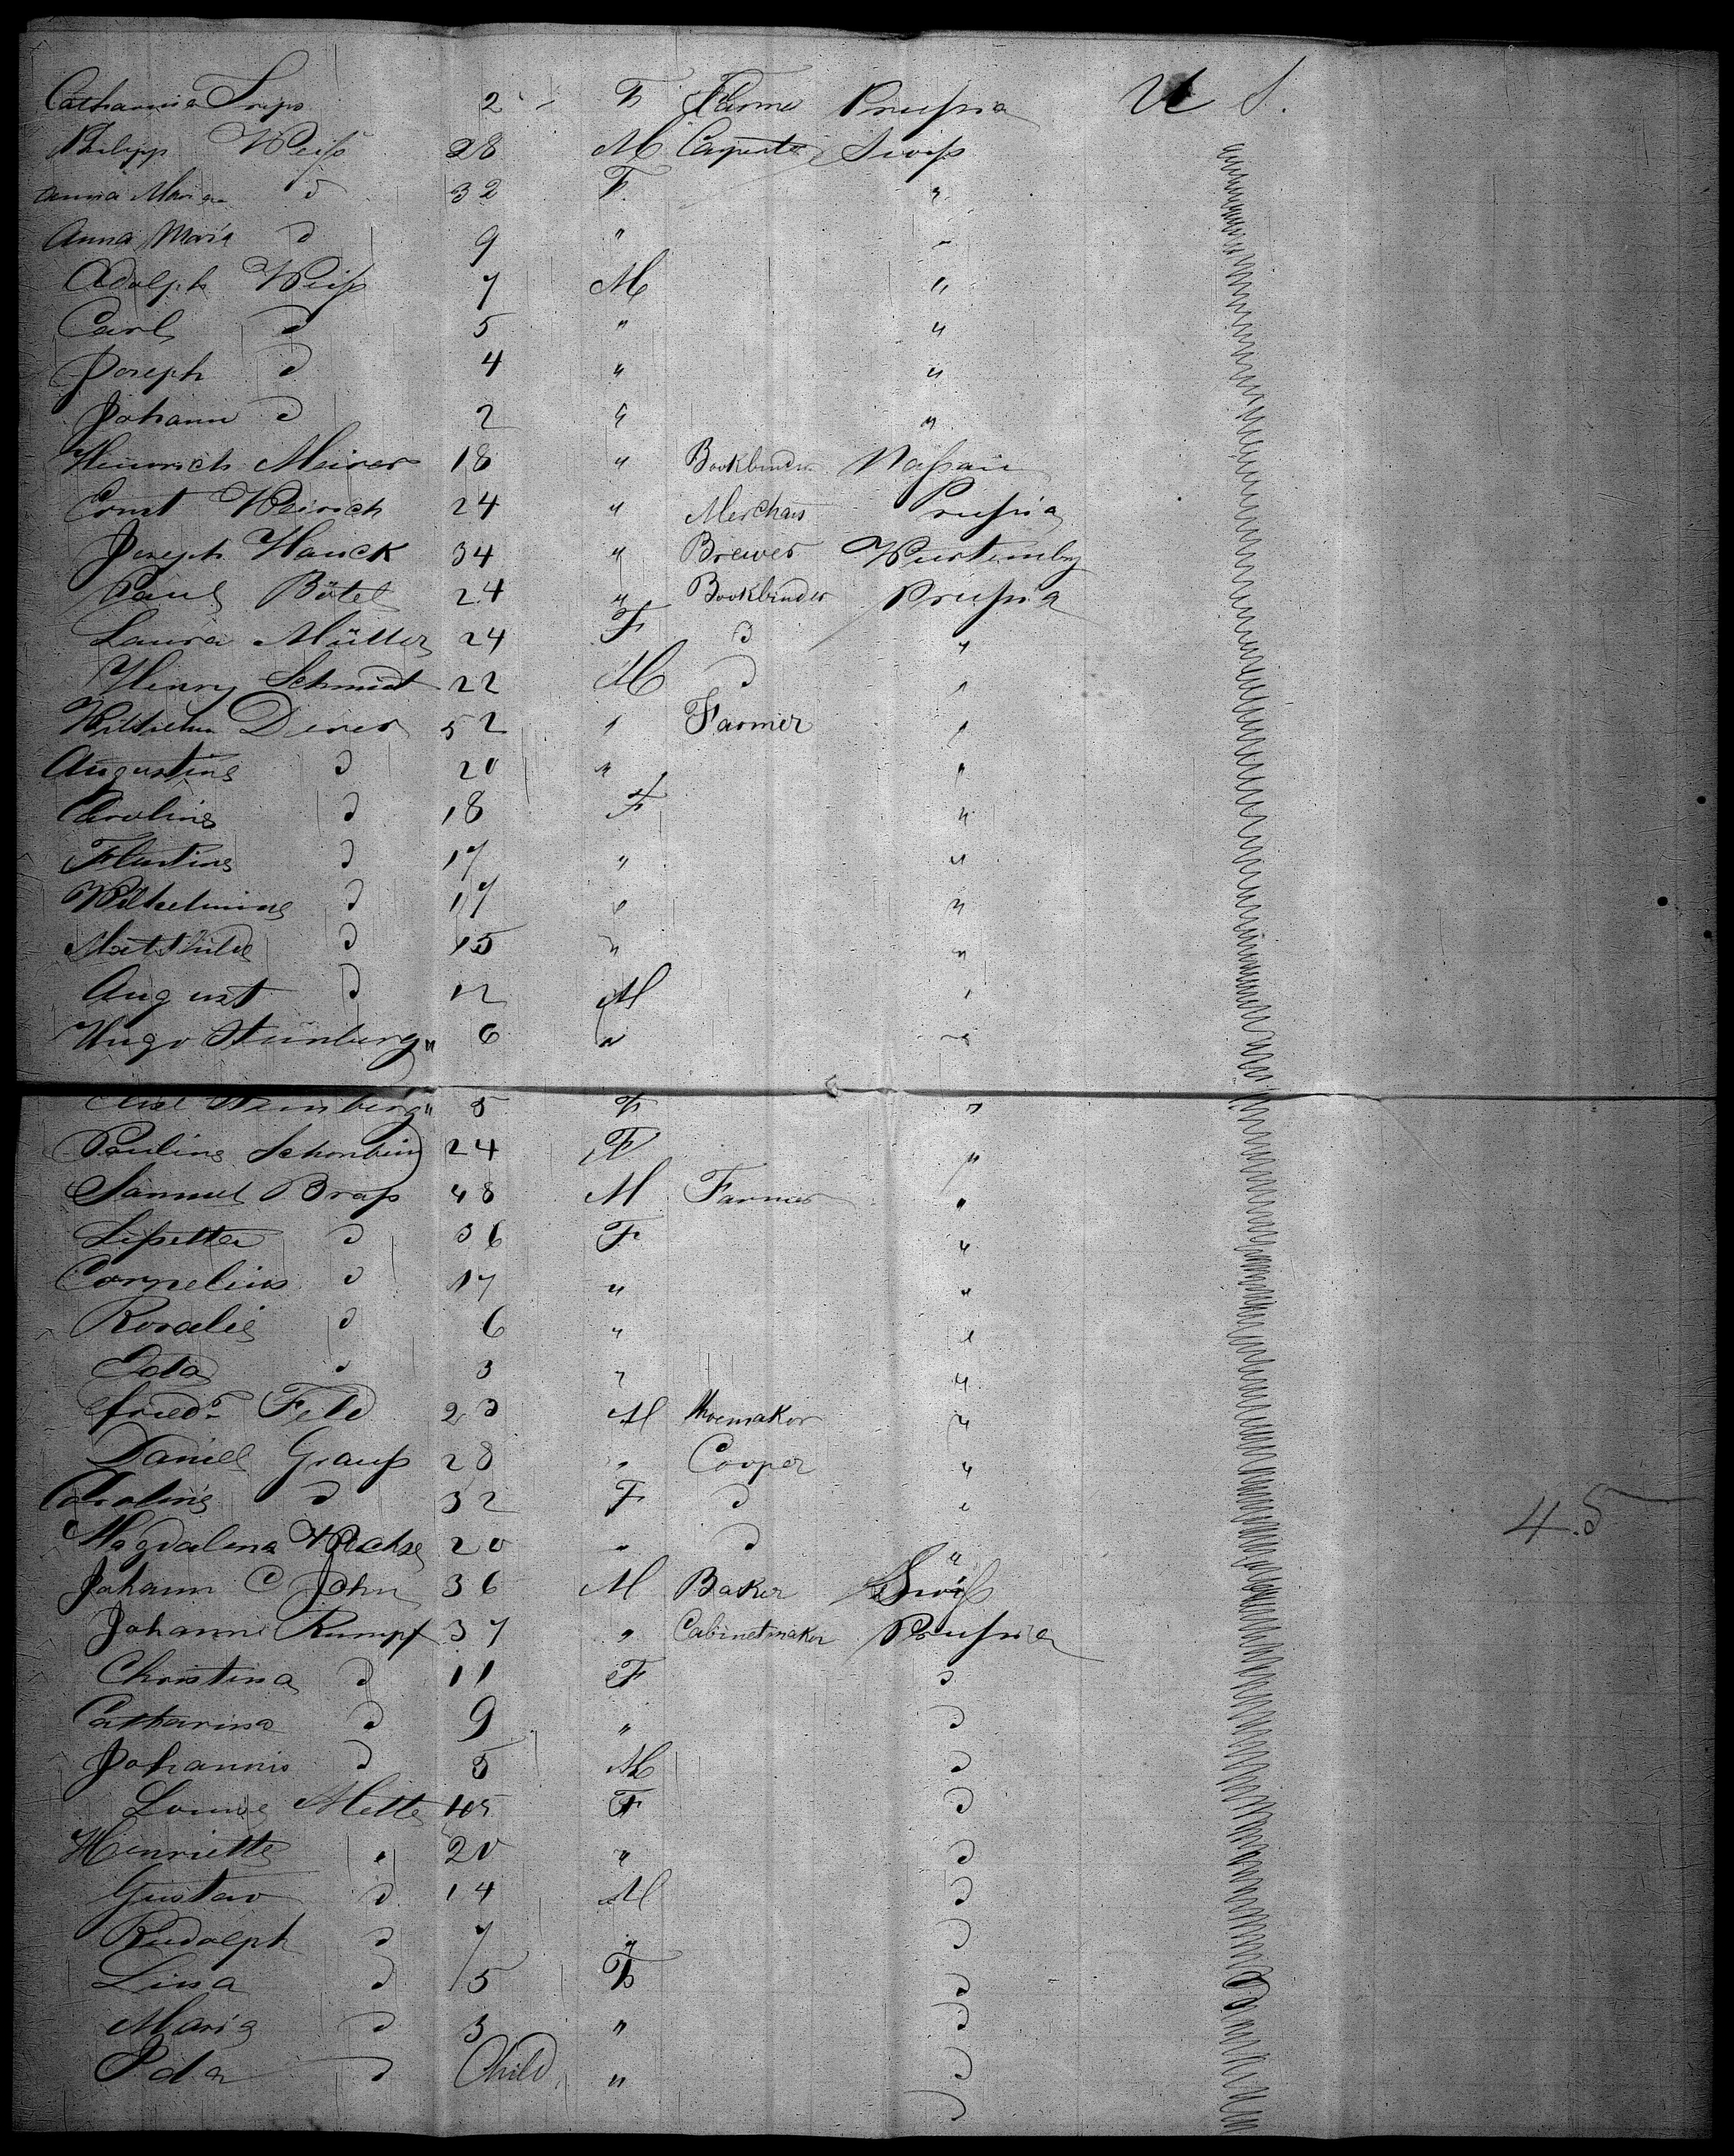 Catharina 2 F Prussia U S.
Philipp Weiss 28 M Carpenter Swiss
Anna Maria d 32 F. "
Anna Maria d 9 " "
Adolph Weiss 7 M "
Carl d 5 " "
Joseph d 4 " "
Johann d 2 " "
Heinrich Meirer 18 " Bookbinder Nassau
Ernst Weirich 24 " Merchant Prussia
Joseph Hauck 34 " Brewer Wurtemberg
Paul Bötel 24 " Bookbinder Prussia
Laura Müller 24 F d "
Henry Schmidt 22 M d "
Wilhelm Derer 52 " Farmer "
Augustine d 20 " "
Caroline d 18 F "
d 17 " "
Wilhelmine d 17 " "
Mathilde d 15 " "
August d 12 M "
Hugo Steinberg " 6 " "
Steinberg " 5 F "
Pauline 24 F "
Samuel Brass 48 M Farmer "
Lisette d 36 F "
Cornelius d 17 " "
Rosalie d 6 " "
Ida d 3 " "
Fried. Feld 23 M Shoemaker "
Daniel Grauss 28 " Cooper "
Caroline d 32 F d "
Magdalena 20 " d "
Johann C John 36 M Baker Swiss
Johann Rumpf 37 " Cabinetmaker Prussia
Christina d 11 F d
Catharina d 9 " d
Johannis d 5 M d
Louise Mette 45 F d
Henriette " 20 " d
Gustav d 14 M d
Rudolph d 7 " d
Lina d 5 F d
Maria d 3 " d
Ida d Child " d
45